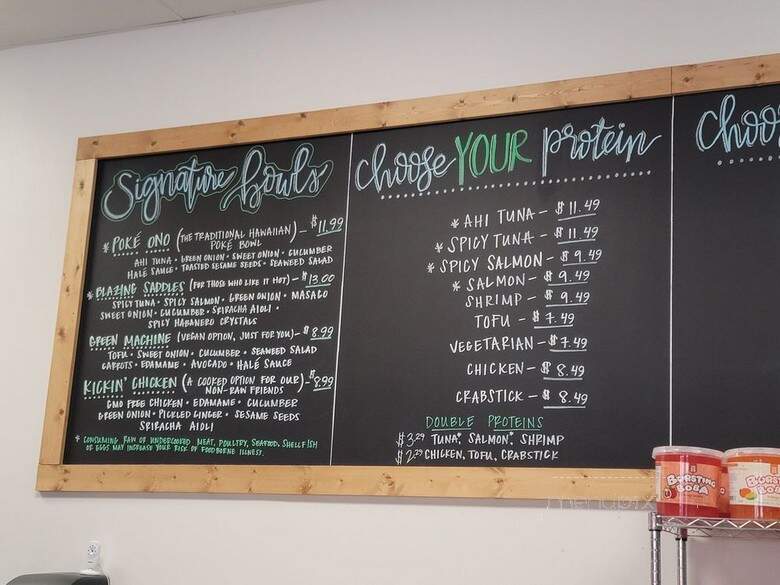 Signature Bowls
* POKÉ ONO (THE TRADITIONAL HAWAIIAN) - $11.99
POKÉ BOWL
AHI TUNA • GREEN ONION • SWEET ONION • CUCUMBER
HALÉ SAUCE • TOASTED SESAME SEEDS • SEAWEED SALAD
* BLAZING SADDLES (FOR THOSE WHO LIKE IT HOT) - $13.00
SPICY TUNA • SPICY SALMON • GREEN ONION • MASAGO
SWEET ONION • CUCUMBER • SRIRACHA AIOLI •
SPICY HABANERO CRYSTALS
GREEN MACHINE (VEGAN OPTION, JUST FOR YOU) - $8.99
TOFU • SWEET ONION • CUCUMBER • SEAWEED SALAD
CARROTS • EDAMAME • AVOCADO • HALÉ SAUCE
KICKIN' CHICKEN (A COOKED OPTION FOR OUR) - $8.99
NON-RAW FRIENDS
GMO FREE CHICKEN • EDAMAME • CUCUMBER
GREEN ONION • PICKLED GINGER • SESAME SEEDS
SRIRACHA AIOLI
* CONSUMING RAW OR UNDERCOOKED MEAT, POULTRY, SEAFOOD, SHELLFISH
OR EGGS MAY INCREASE YOUR RISK OF FOODBORNE ILLNESS.
choose YOUR protein
* AHI TUNA - $11.49
* SPICY TUNA - $11.49
* SPICY SALMON - $9.49
* SALMON - $9.49
SHRIMP - $9.49
TOFU - $7.49
VEGETARIAN - $7.49
CHICKEN - $8.49
CRABSTICK - $8.49
DOUBLE PROTEINS
$3.29 TUNA*, SALMON*, SHRIMP
$2.29 CHICKEN, TOFU, CRABSTICK
Choo
BURSTING
BOBA
BURSTING
BOBA